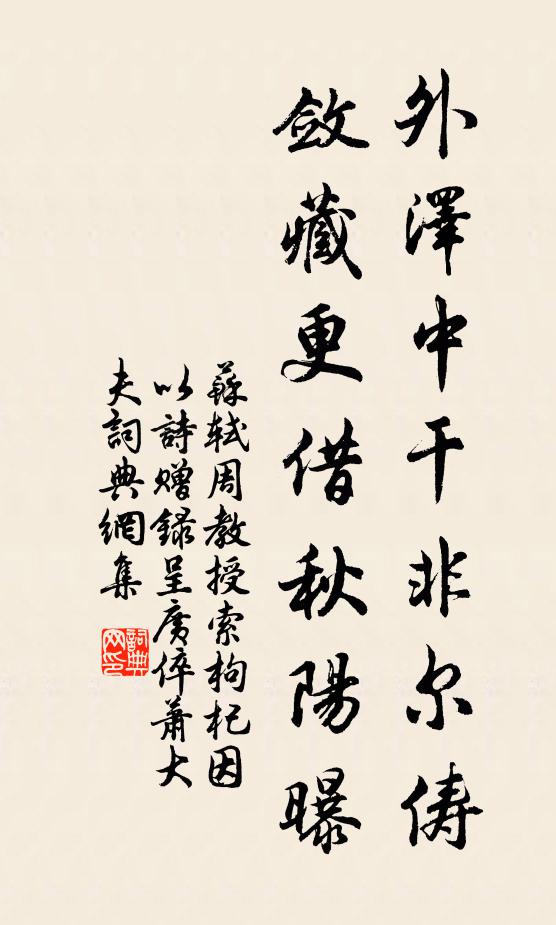 外澤中干非尔儔
斂藏更借秋陽曝
蘇軾周教授索枸杞因
以詩贈録呈廣倅蕭大
夫詞典網集
詞典
网印